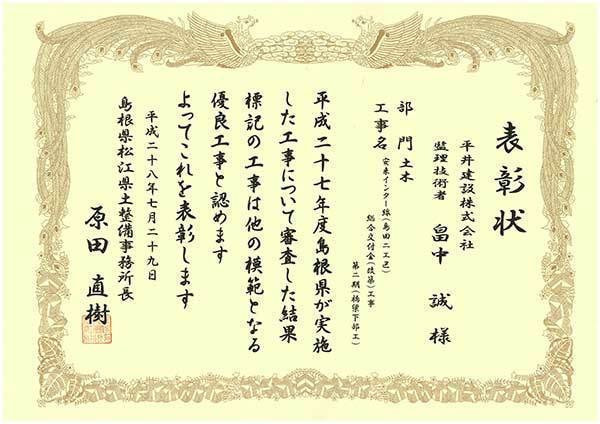 表彰状
平井建設株式会社
監理技術者 畠中 誠 様
部門 土木
工事名 安来インター線(島田二工区)
総合交付金(改築)工事
第二期(橋梁下部工)
平成二十七年度島根県が実施
した工事について審査した結果
標記の工事は他の模範となる
優良工事と認めます
よってこれを表彰します
平成二十八年七月二十九日
島根県松江県土整備事務所長
原田 直樹